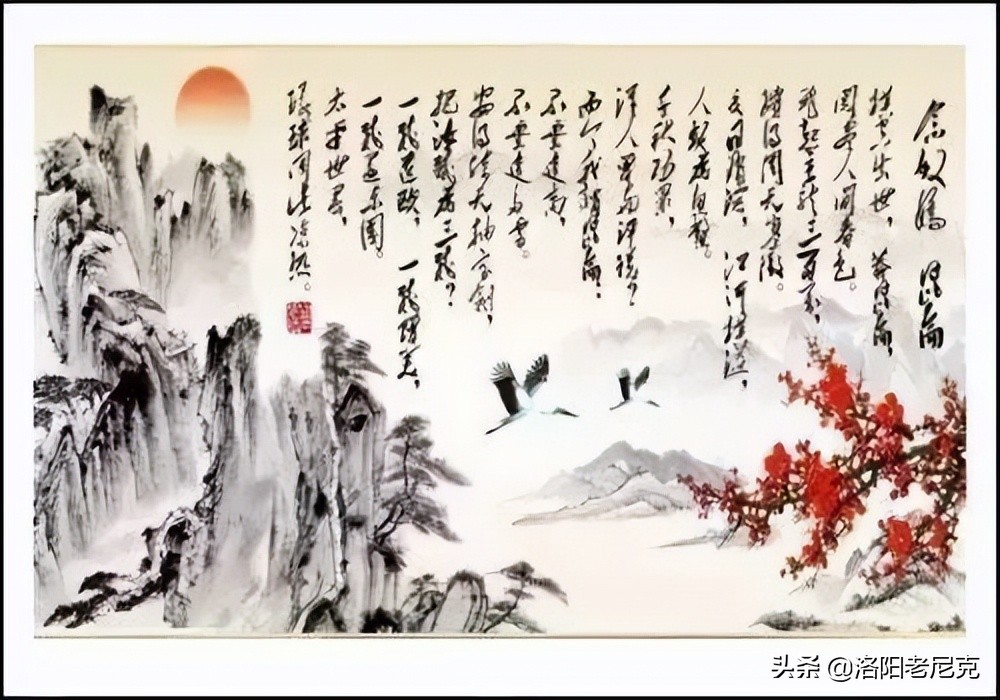 念奴娇 昆仑
横空出世,莽昆仑,
阅尽人间春色。
飞起玉龙三百万,
搅得周天寒彻。
夏日消溶,江河横溢,
人或为鱼鳖。
千秋功罪,
谁人曾与评说?
而今我谓昆仑:
不要这高,
不要这多雪。
安得倚天抽宝剑,
把汝裁为三截?
一截遗欧,一截赠美,
一截还东国。
太平世界,
环球同此凉热。
头条 @洛阳老尼克